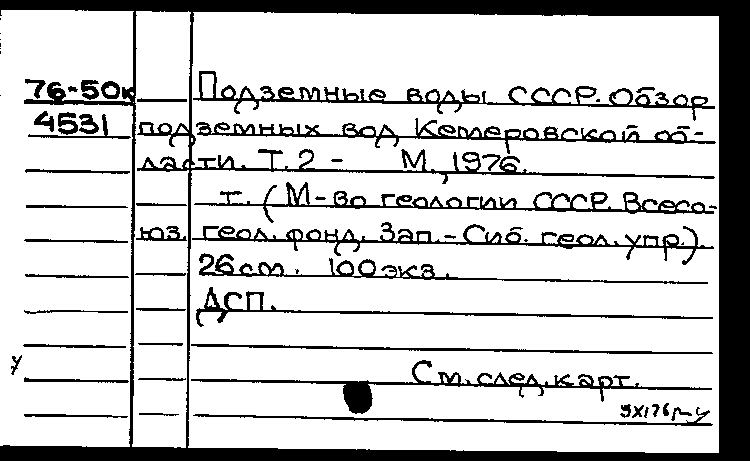 76-50к Подземные воды СССР. Обзор
4531 подземных вод Кемеровской об-
ласти. Т. 2 - М., 1976.
т. (М-во геологии СССР. Всесо-
юз. геол. фонд. Зап.-Сиб. геол. упр.)
26 см. 100 экз.
ДСП.
У
См. след. карт.